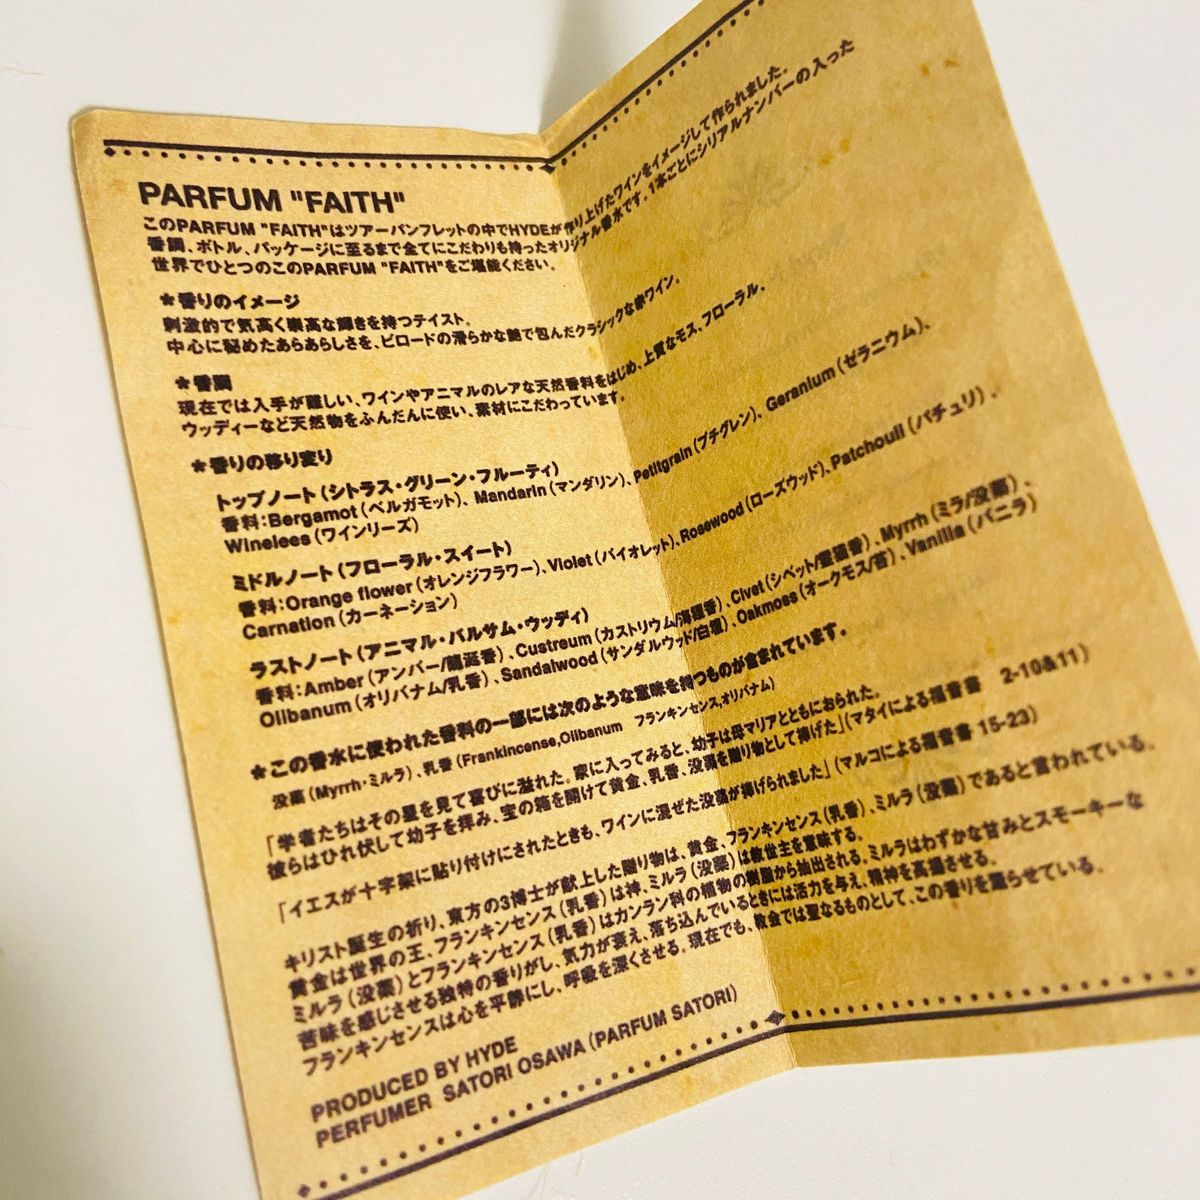 PARFUM "FAITH"
このPARFUM "FAITH"はツアーパンフレットの中でHYDEが作り上げたワインをイメージして作られました。
香調、ボトル、パッケージに至るまで全てにこだわりも持ったオリジナル香水です。1本ごとにシリアルナンバーの入った
世界でひとつのこのPARFUM "FAITH"をご堪能ください。
*香りのイメージ
刺激的で気高く崇高な輝きを持つテイスト。
中心に秘めたあらあらしさを、ビロードの滑らかな艶で包んだクラシックな赤ワイン。
*香調
現在では入手が難しい、ワインやアニマルのレアな天然香料をはじめ、上質なモス、フローラル、
ウッディーなど天然物をふんだんに使い、素材にこだわっています。
*香りの移り変り
トップノート(シトラス・グリーン・フルーティ)
香料:Bergamot(ベルガモット)、Mandarin(マンダリン)、Petitgrain(プチグレン)、Geranium(ゼラニウム)、
Winelees(ワインリーズ)
ミドルノート(フローラル・スイート)
香料:Orange flower(オレンジフラワー)、Violet(バイオレット)、Rosewood(ローズウッド)、Patchouli(パチュリ)、
Carnation(カーネーション)
ラストノート(アニマル・バルサム・ウッディ)
香料:Amber(アンバー/龍涎香)、Custreum(カストリウム/海狸香)、Civet(シベット/霊猫香)、Myrrh(ミラ/没薬)、
Olibanum(オリバナム/乳香)、Sandalwood(サンダルウッド/白檀)、Oakmoss(オークモス/苔)、Vanilla(バニラ)
*この香水に使われた香料の一部には次のような意味を持つものが含まれています。
没薬(Myrrh・ミルラ)、乳香(Frankincense,Olibanum フランキンセンス,オリバナム)
「学者たちはその星を見て喜びに溢れた。家に入ってみると、幼子は母マリアとともにおられた。
彼らはひれ伏して幼子を拝み、宝の箱を開けて黄金、乳香、没薬を贈り物として捧げた」(マタイによる福音書 2-10&11)
「イエスが十字架に貼り付けにされたときも、ワインに混ぜた没薬が捧げられました」(マルコによる福音書 15-23)
キリスト誕生の祈り、東方の3博士が献上した贈り物は、黄金、フランキンセンス(乳香)、ミルラ(没薬)であると言われている。
黄金は世界の王、フランキンセンス(乳香)は神、ミルラ(没薬)は救世主を意味する。
ミルラ(没薬)とフランキンセンス(乳香)はカンラン科の植物の樹脂から抽出される。ミルラはわずかな甘みとスモーキーな
苦味を感じさせる独特の香りがし、気力が衰え、落ち込んでいるときには活力を与え、精神を高揚させる。
フランキンセンスは心を平静にし、呼吸を深くさせる。現在でも、教会では聖なるものとして、この香りを薫らせている。
PRODUCED BY HYDE
PERFUMER SATORI OSAWA(PARFUM SATORI)